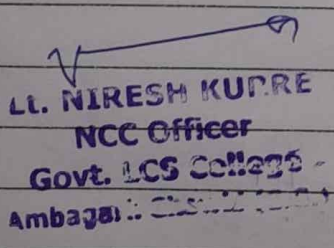 Lt. NIRESH KURRE
NCC Officer
Govt. LCS College